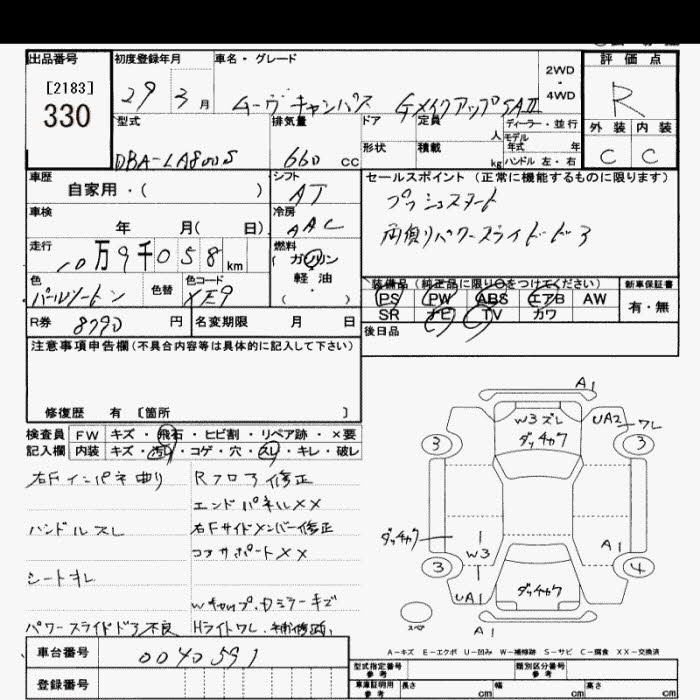 出品番号
[2183]
330
初度登録年月
29 3月
車名・グレード
ムーヴキャンバス GメイクアップSAⅢ
2WD
・
4WD
評価点
R
外装 内装
C C
型式
DBA-LA800S
排気量
660 cc
ドア
形状
定員
人
積載
kg
ディーラー・並行
モデル
年式 年
ハンドル 左・右
車歴
自家用・( )
シフト
AT
セールスポイント (正常に機能するものに限ります)
プッシュスタート
両側パワースライドドア
車検
年 月( 日)
冷房
AAC
走行
10万9千058km
燃料
ガソリン
軽油
( ・ )
色
パールツートン
色替
色コード
XE9
装備品 (純正品に限り〇をつけてください)
PS PW ABS エアB AW
SR ナビ TV カワ
新車保証書
有・無
R券 8790円
名変期限 月 日
後日品
注意事項申告欄(不具合内容等は具体的に記入して下さい)
修復歴 有 〔箇所 〕
検査員
記入欄
FW キズ・飛石・ヒビ割・リペア跡・×要
内装 キズ・汚れ・コゲ・穴・スレ・キレ・破レ
右Fインパネ曲り
ハンドルスレ
シートオレ
パワースライドドア不良
Rフロア修正
エンドパネル××
右Fサイドメンバー修正
コアサポート××
Wキャップ・Dミラーキズ
Hライトワレ・補修跡
A1
W3ズレ
ダッチャク
UA2 ワレ
3 3
ダッチャク
W3
A1
3 4
UA1
ダッチャク
スペア
A1
A-キズ E-エクボ U-凹み W-補修跡 S-サビ C-腐食 XX-交換済
車台番号
0040591
登録番号
型式指定番号
参考
類別区分番号
参考
車庫証明用
参考
長さ cm
幅 cm
高さ cm